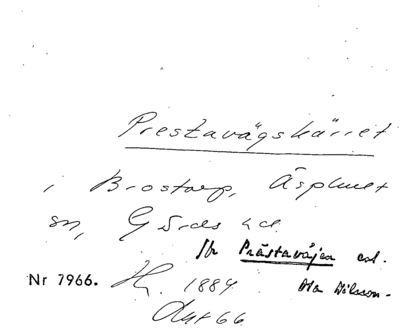 Prestavägskärret
i Brostorp, Äsphult
sn, Gärds hd.
Prästavägen enl.
Nr 7966. 1884 Ola Nilsson.
Akt 66